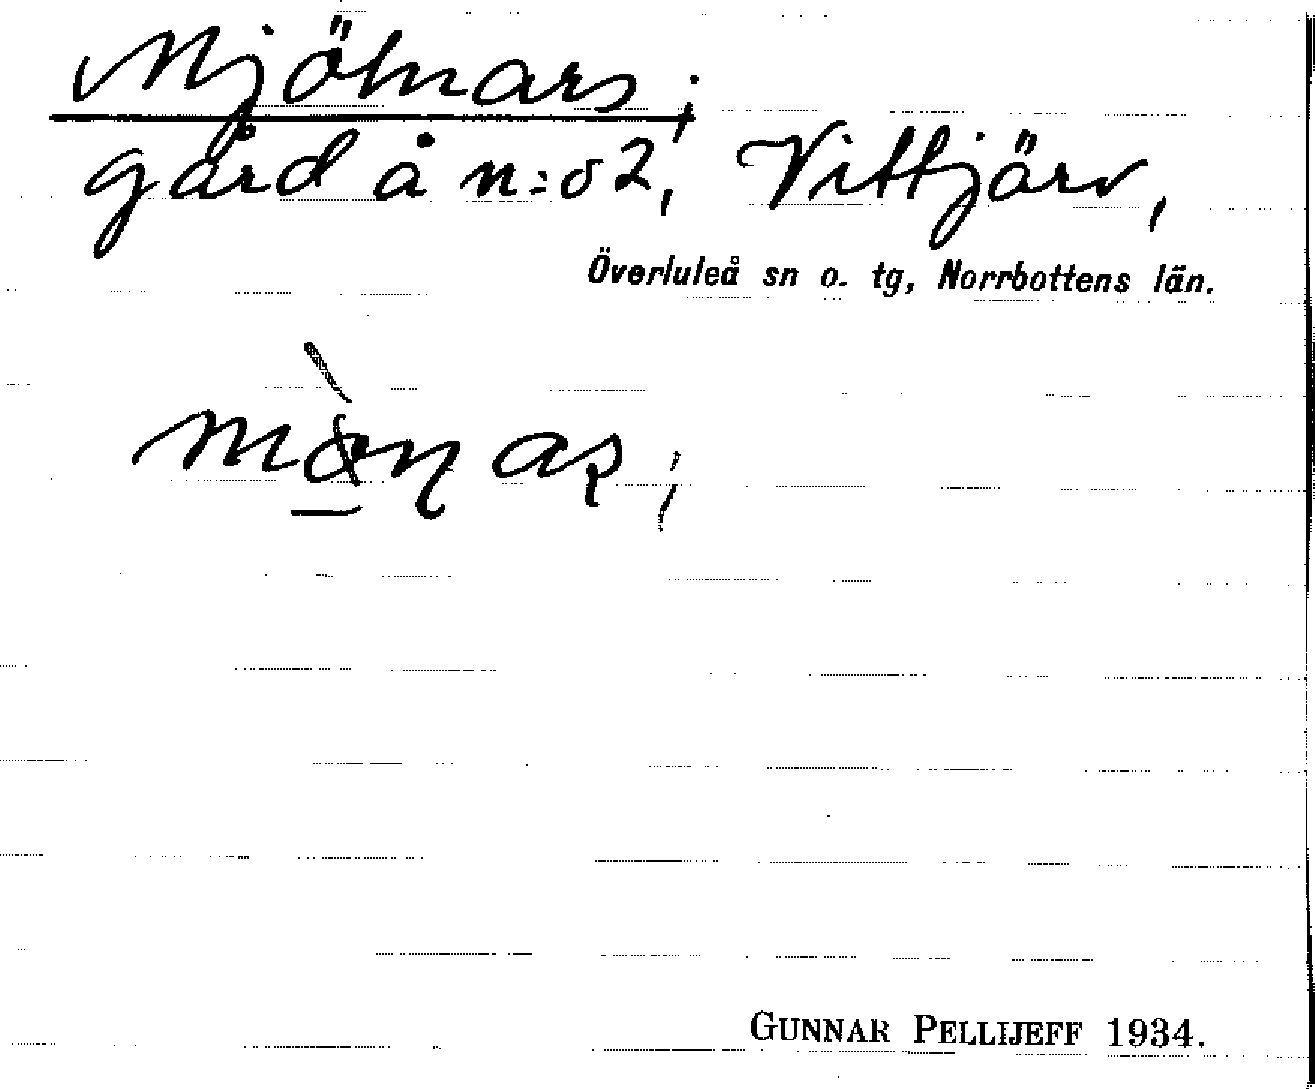 Mjölnars;
gård å n:o 2, Vittjärv,
Överluleå sn o. tg, Norrbottens län.
GUNNAR PELLIJEFF 1934.